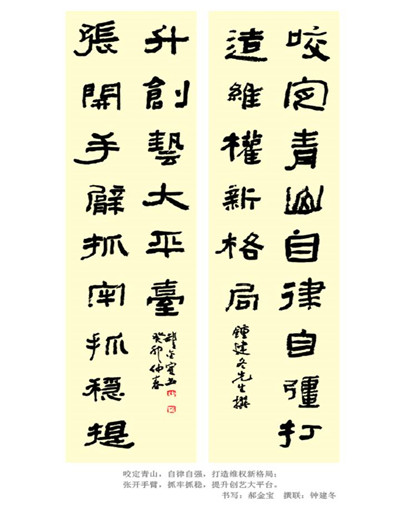 咬定青山自律自彊打
造維權新格局
鍾建冬先生撰
張開手臂抓牢抓穩提
升創藝大平臺
癸卯仲春
咬定青山，自律自强，打造维权新格局；
张开手臂，抓牢抓稳，提升创艺大平台。
书写：郝金宝　撰联：钟建冬